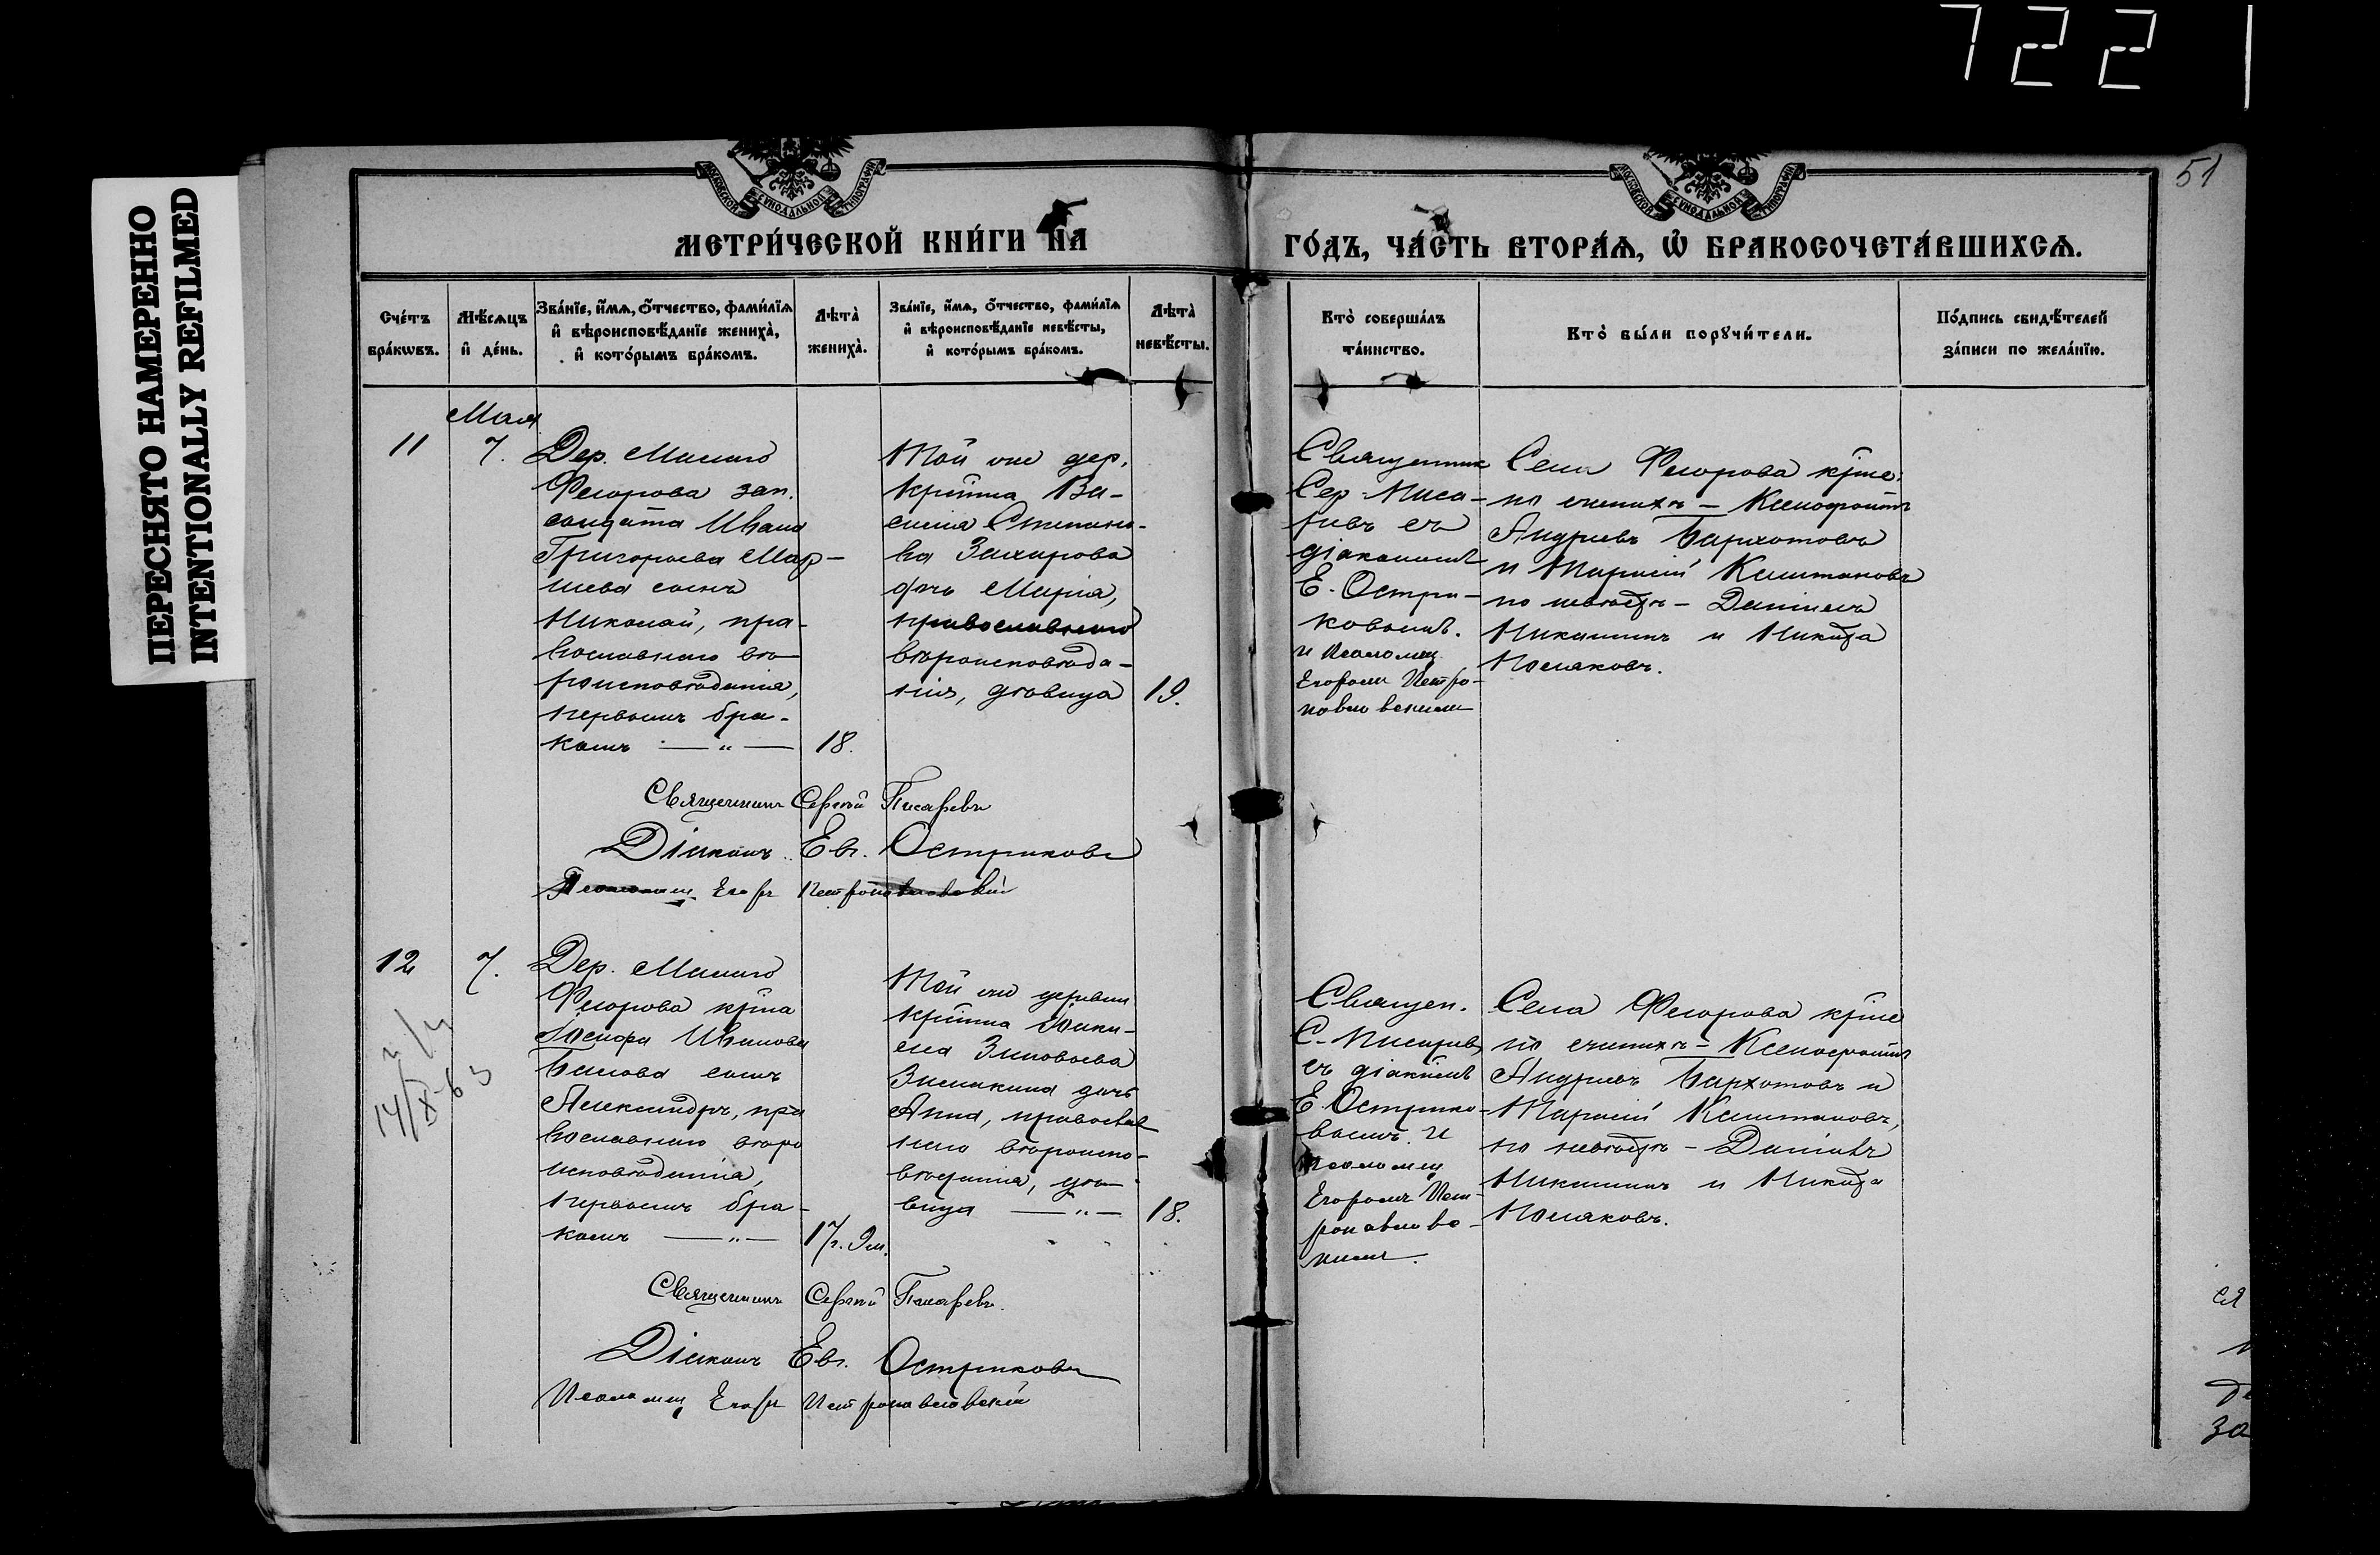 722
ПЕРЕСНЯТО НАМЕРЕННО
INTENTIONALLY REFILMED
51
МОСКОВСКОЙ СѴНОДАЛЬНОЙ ТИПОГРАФІИ
МОСКОВСКОЙ СѴНОДАЛЬНОЙ ТИПОГРАФІИ
МЕТРИ́ЧЕСКОЙ КНИ́ГИ НА
ГО́ДЪ, ЧА́СТЬ ВТОРА́Ѧ, Ѡ҆ БРАКОСОЧЕТА́ВШИХСѦ.
Сче́тъ бра́кѡвъ.
Мѣ́сѧцъ и҆ де́нь.
Зва́нїе, и҆́мѧ, ѻ҆́тчество, фами́лїѧ
и҆ вѣроисповѣ́данїе жениха̀,
и҆ кото́рымъ бра́комъ.
Лѣта̀ жениха̀.
Зва́нїе, и҆́мѧ, ѻ҆́тчество, фами́лїѧ
и҆ вѣроисповѣ́данїе невѣ́сты,
и҆ кото́рымъ бра́комъ.
Лѣта̀ невѣ́сты.
Кто̀ соверша́лъ та́инство.
Кто̀ бы́ли порꙋчи́тели.
По́дпись свидѣ́телей
за́писи по жела́нїю.
Мая
11
7.
Дер. Малаго
Федорова зап.
солдата Ивана
Григорьева Мар-
сынъ
Николай, пра-
вославнаго вѣ-
роисповѣданія,
первымъ бра-
комъ — „ —
18.
Той же дер.
крестна Ва-
силія Степано-
ва Захарова
дочь Марія,
православнаго
вѣроисповѣда-
нія, дѣвица
19.
Священник
Сер. Писа-
ревъ съ
діакономъ
Е. Остри-
ковымъ.
и Псаломщ.
Егоромъ Петро-
павловскимъ
Села Федорова крсне
по женихѣ — Ксенофонтъ
Андреевъ Бархотовъ
и Тарасій Каштановъ
по невѣстѣ — Даніилъ
Никитинъ и Никита
Поляковъ.
Священникъ Сергей Писаревъ
Діаконъ Евг. Остриковъ
Псаломщ. Егоръ Петропавловскій
12
7.
14/X-63
Дер. Малаго
Федорова крсна
Іосифа Иванова
сынъ
Александръ, пра
вославнаго вѣро
исповѣданія,
первымъ бра-
комъ — „ —
17 г. 9 м.
Той же деревни
крестна
Зиновьева
дочь
Анна, православ
наго вѣроиспо-
вѣданія, дѣ-
вица — „ —
18.
Священ.
С. Писаревъ
съ діакономъ
Е. Острико-
вымъ. и
Псаломщ.
Егоромъ Пет-
ропавловс-
кимъ.
Села Федорова крсне
по женихѣ — Ксенофонтъ
Андреевъ Бархотовъ и
Тарасій Каштановъ,
по невѣстѣ — Даніилъ
Никитинъ и Никита
Поляковъ.
Священникъ Сергей Писаревъ.
Діаконъ Евг. Остриковъ
Псаломщ. Егоръ Петропавловскій
ся
за